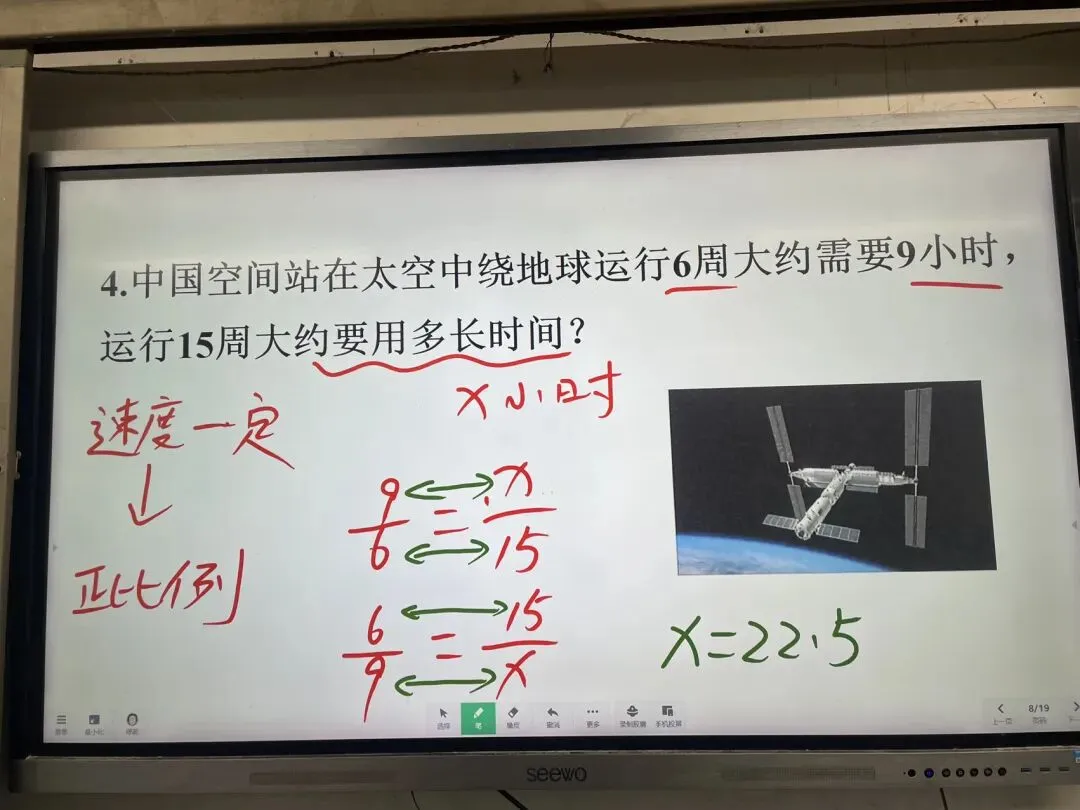 4.中国空间站在太空中绕地球运行6周大约需要9小时，
运行15周大约要用多长时间？
x 小时
速度一定
↓
正比例
9/6 = x/15
6/9 = 15/x
x=22.5
选择 笔 橡皮 撤消 更多 录制胶囊 手机投屏
8/19
上一页 页码
seewo